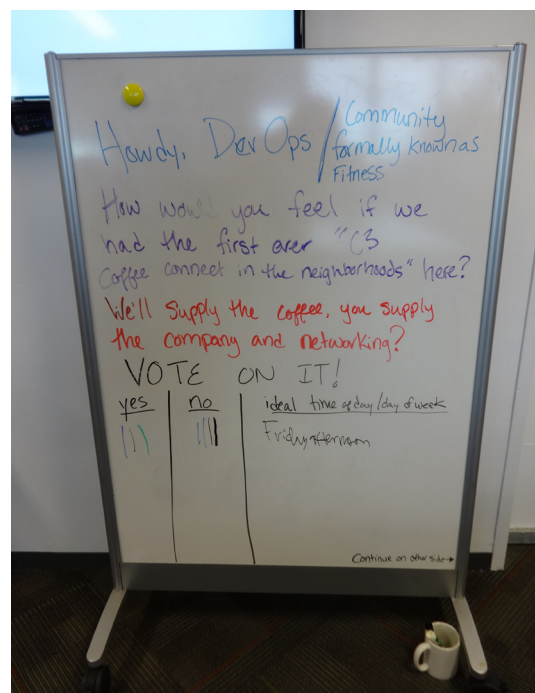 Howdy, DevOps / Community
formally known as
Fitness
How would you feel if we
had the first ever "C3
coffee connect in the neighborhoods" here?
We'll supply the coffee, you supply
the company and networking?
VOTE ON IT!
yes no ideal time of day/day of week
Friday afternoon
Continue on other side→